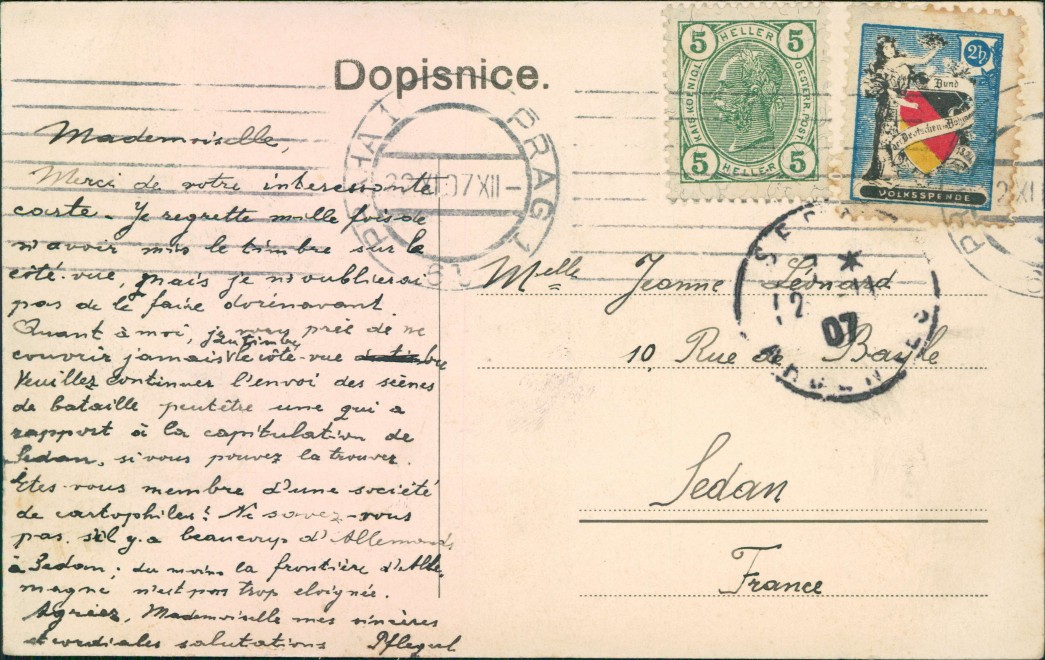 Dopisnice.
HELLER
5 5
KAIS. KOENIGL. OESTERR. POST
5 5
HELLER
2h
Bund
der Deutschen in Böhmen
VOLKSSPENDE
PRAHA 1 PRAG 1
07 XII-
SEDAN
12 - 11
07
ARDENNES
Mademoiselle,
Merci de votre interessante
carte. Je regrette mille fois de
n'avoir mis le timbre sur le
côté-vue, mais je n'oublierai
pas de le faire dorénavant.
Quant à moi, je vous prie de ne
couvrir jamais le côté-vue
du timbre
Veuillez continuer l'envoi des scènes
de bataille peutêtre une qui a
rapport à la capitulation de
Sedan, si vous pouvez la trouver.
Êtes-vous membre d'une société
de cartophiles? Ne savez-vous
pas s'il y a beaucoup d'Allemands
à Sedan; du moins la frontière d'Alle-
magne n'est pas trop eloignée.
Agréez, Mademoiselle mes sincères
et cordiales salutations
Melle Jeanne Léonard
10, Rue de Bayle
Sedan
France